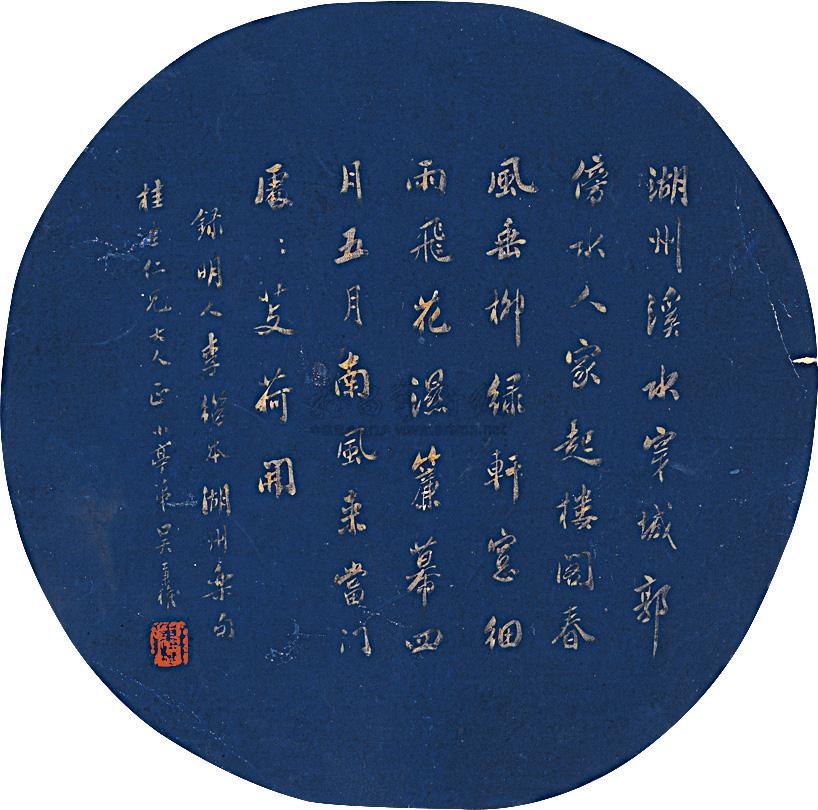 湖州溪水穿城郭
傍水人家起樓閣春
風垂柳綠軒窗細
雨飛花濕簾幕四
月五月南風來當門
處：芰荷開
錄明人李繼本湖州樂句
桂生仁兄大人正 小華弟吳